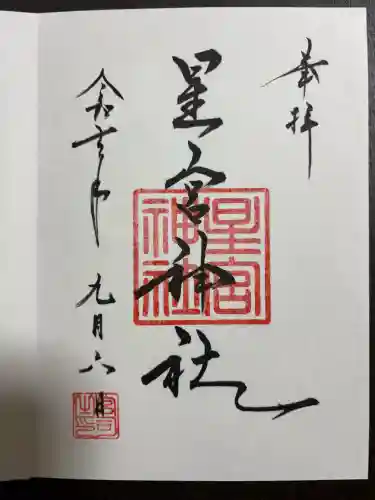 奉拝
星宮神社
星宮
神社
令和年九月六日